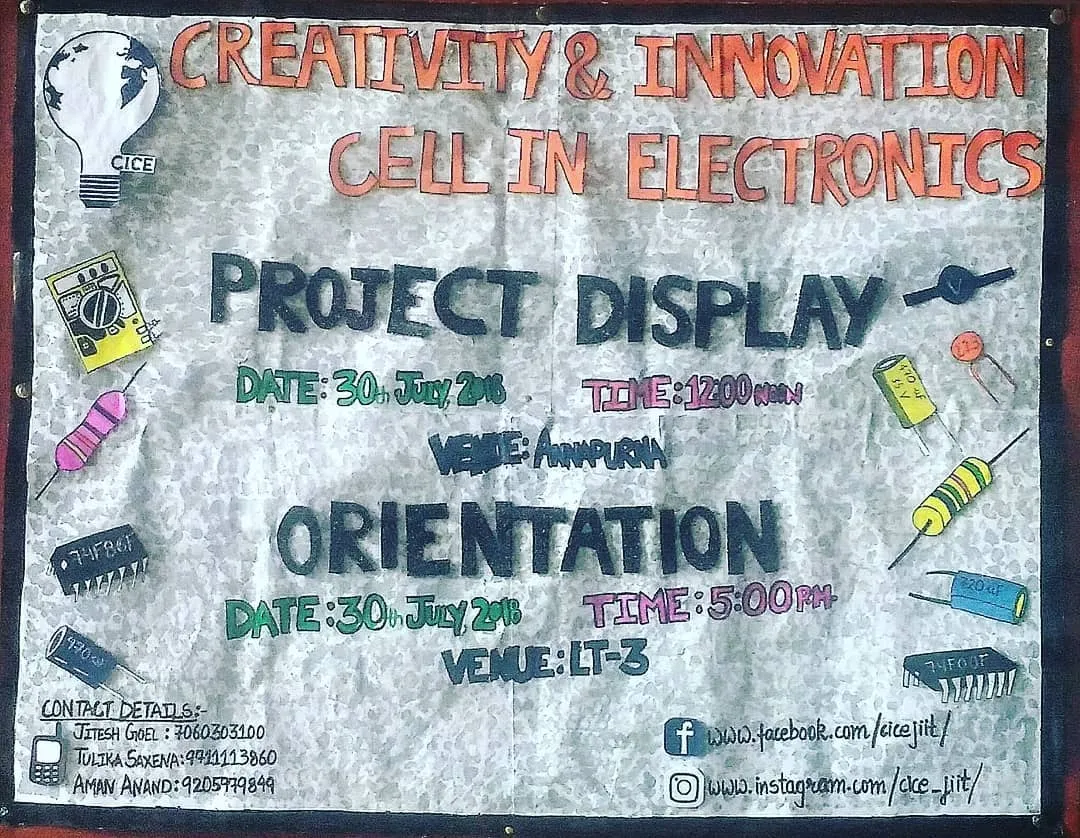 CREATIVITY & INNOVATION
CICE
CELL IN ELECTRONICS
PROJECT DISPLAY
DATE: 30th JULY, 2018
TIME: 12:00 NOON
VENUE: ANNAPURNA
ORIENTATION
DATE: 30th JULY, 2018
TIME: 5:00 PM
VENUE: LT-3
470 uF
25 V
74F86F
470 uF
220 uF
74F00F
CONTACT DETAILS:-
JITESH GOEL : 7060303100
TULIKA SAXENA: 9711113860
AMAN ANAND: 9205979849
f www.facebook.com/cicejiit/
www.instagram.com/cice_jiit/